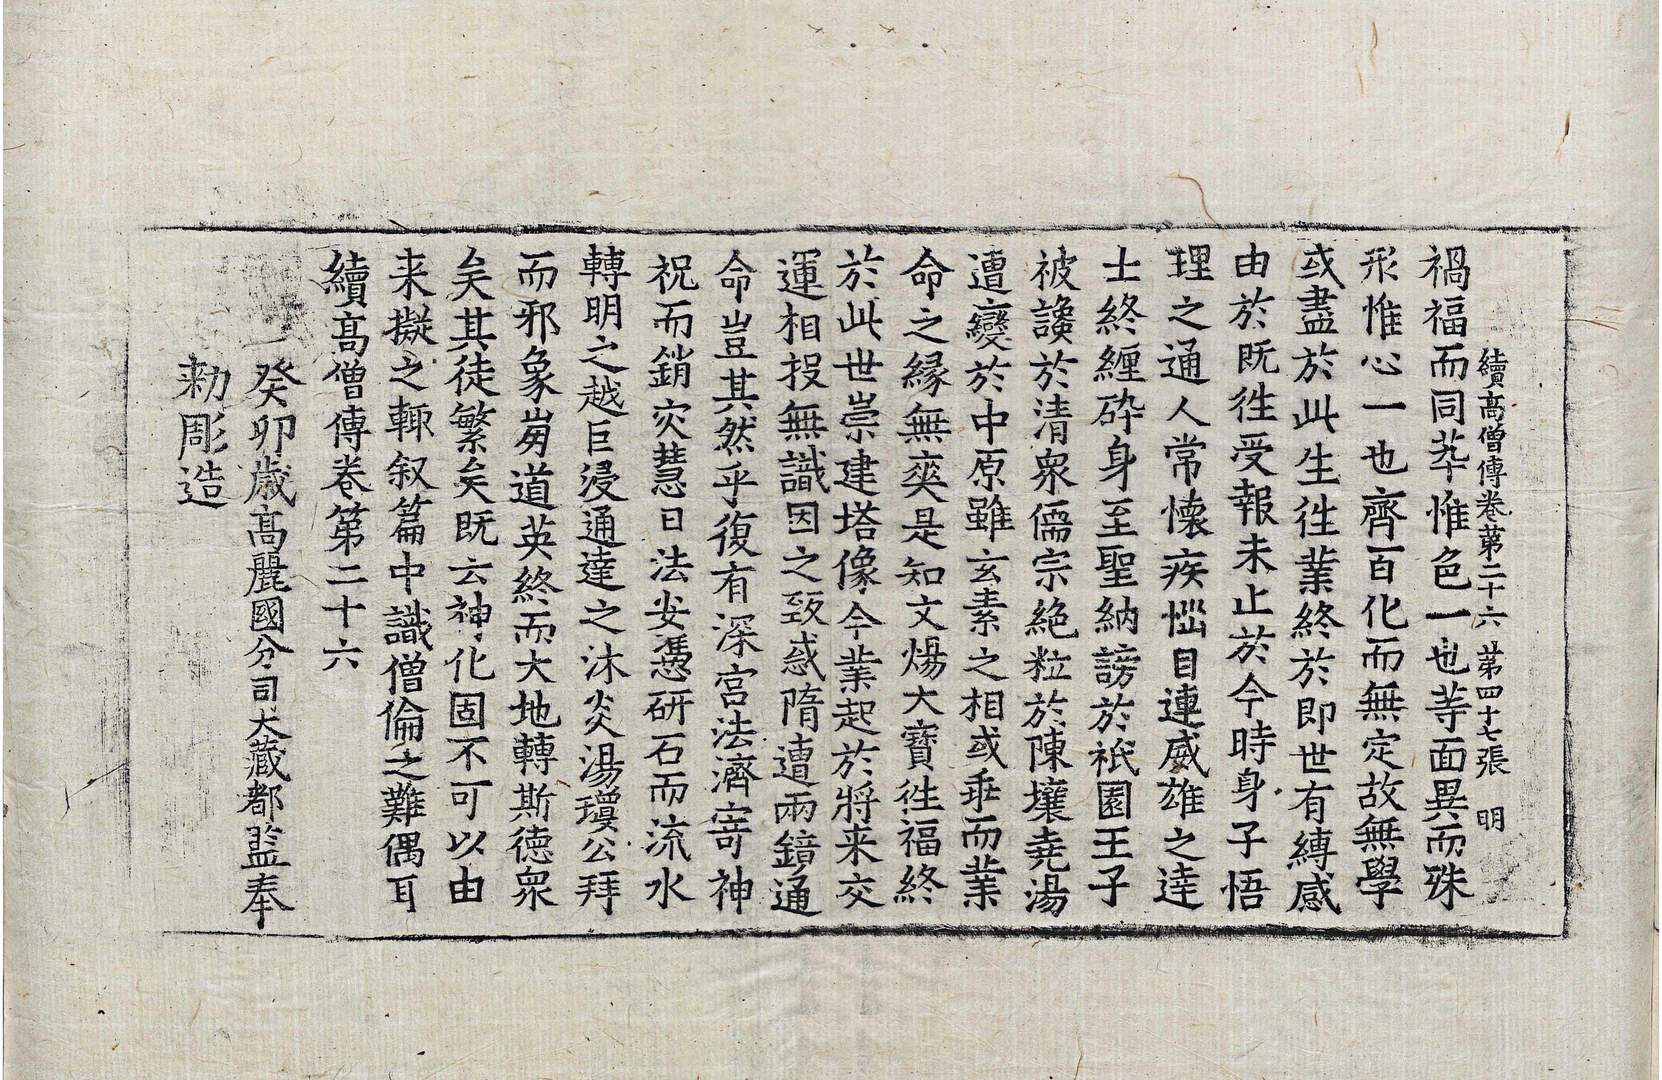 續高僧傳卷苐二十六 苐四十七張 明
禍福而同萃惟色一也等面異而殊
形惟心一也齊百化而無定故無學
或盡於此生徃業終於即世有縛感
由於既徃受報未止於今時身子悟
理之通人常懷疾惱目連威雄之達
士終纏碎身至聖納謗於祇園王子
被讒於清衆儒宗絶粒於陳壤堯湯
遭變於中原雖玄素之相或乖而業
命之縁無爽是知文煬大寶徃福終
於此世崇建塔像今業起於將来交
運相投無識因之致惑隋遭兩鏡通
命豈其然乎復有深宮法濟寄神
祝而銷灾慧日法安憑研石而流水
轉明之越巨浸通達之沐炎湯瓊公拜
而邪象崩道英終而大地轉斯德衆
矣其徒繁矣既云神化固不可以由
来擬之輙叙篇中識僧倫之難偶耳
續高僧傳卷第二十六
癸卯歳高麗國分司大藏都監奉
勑彫造